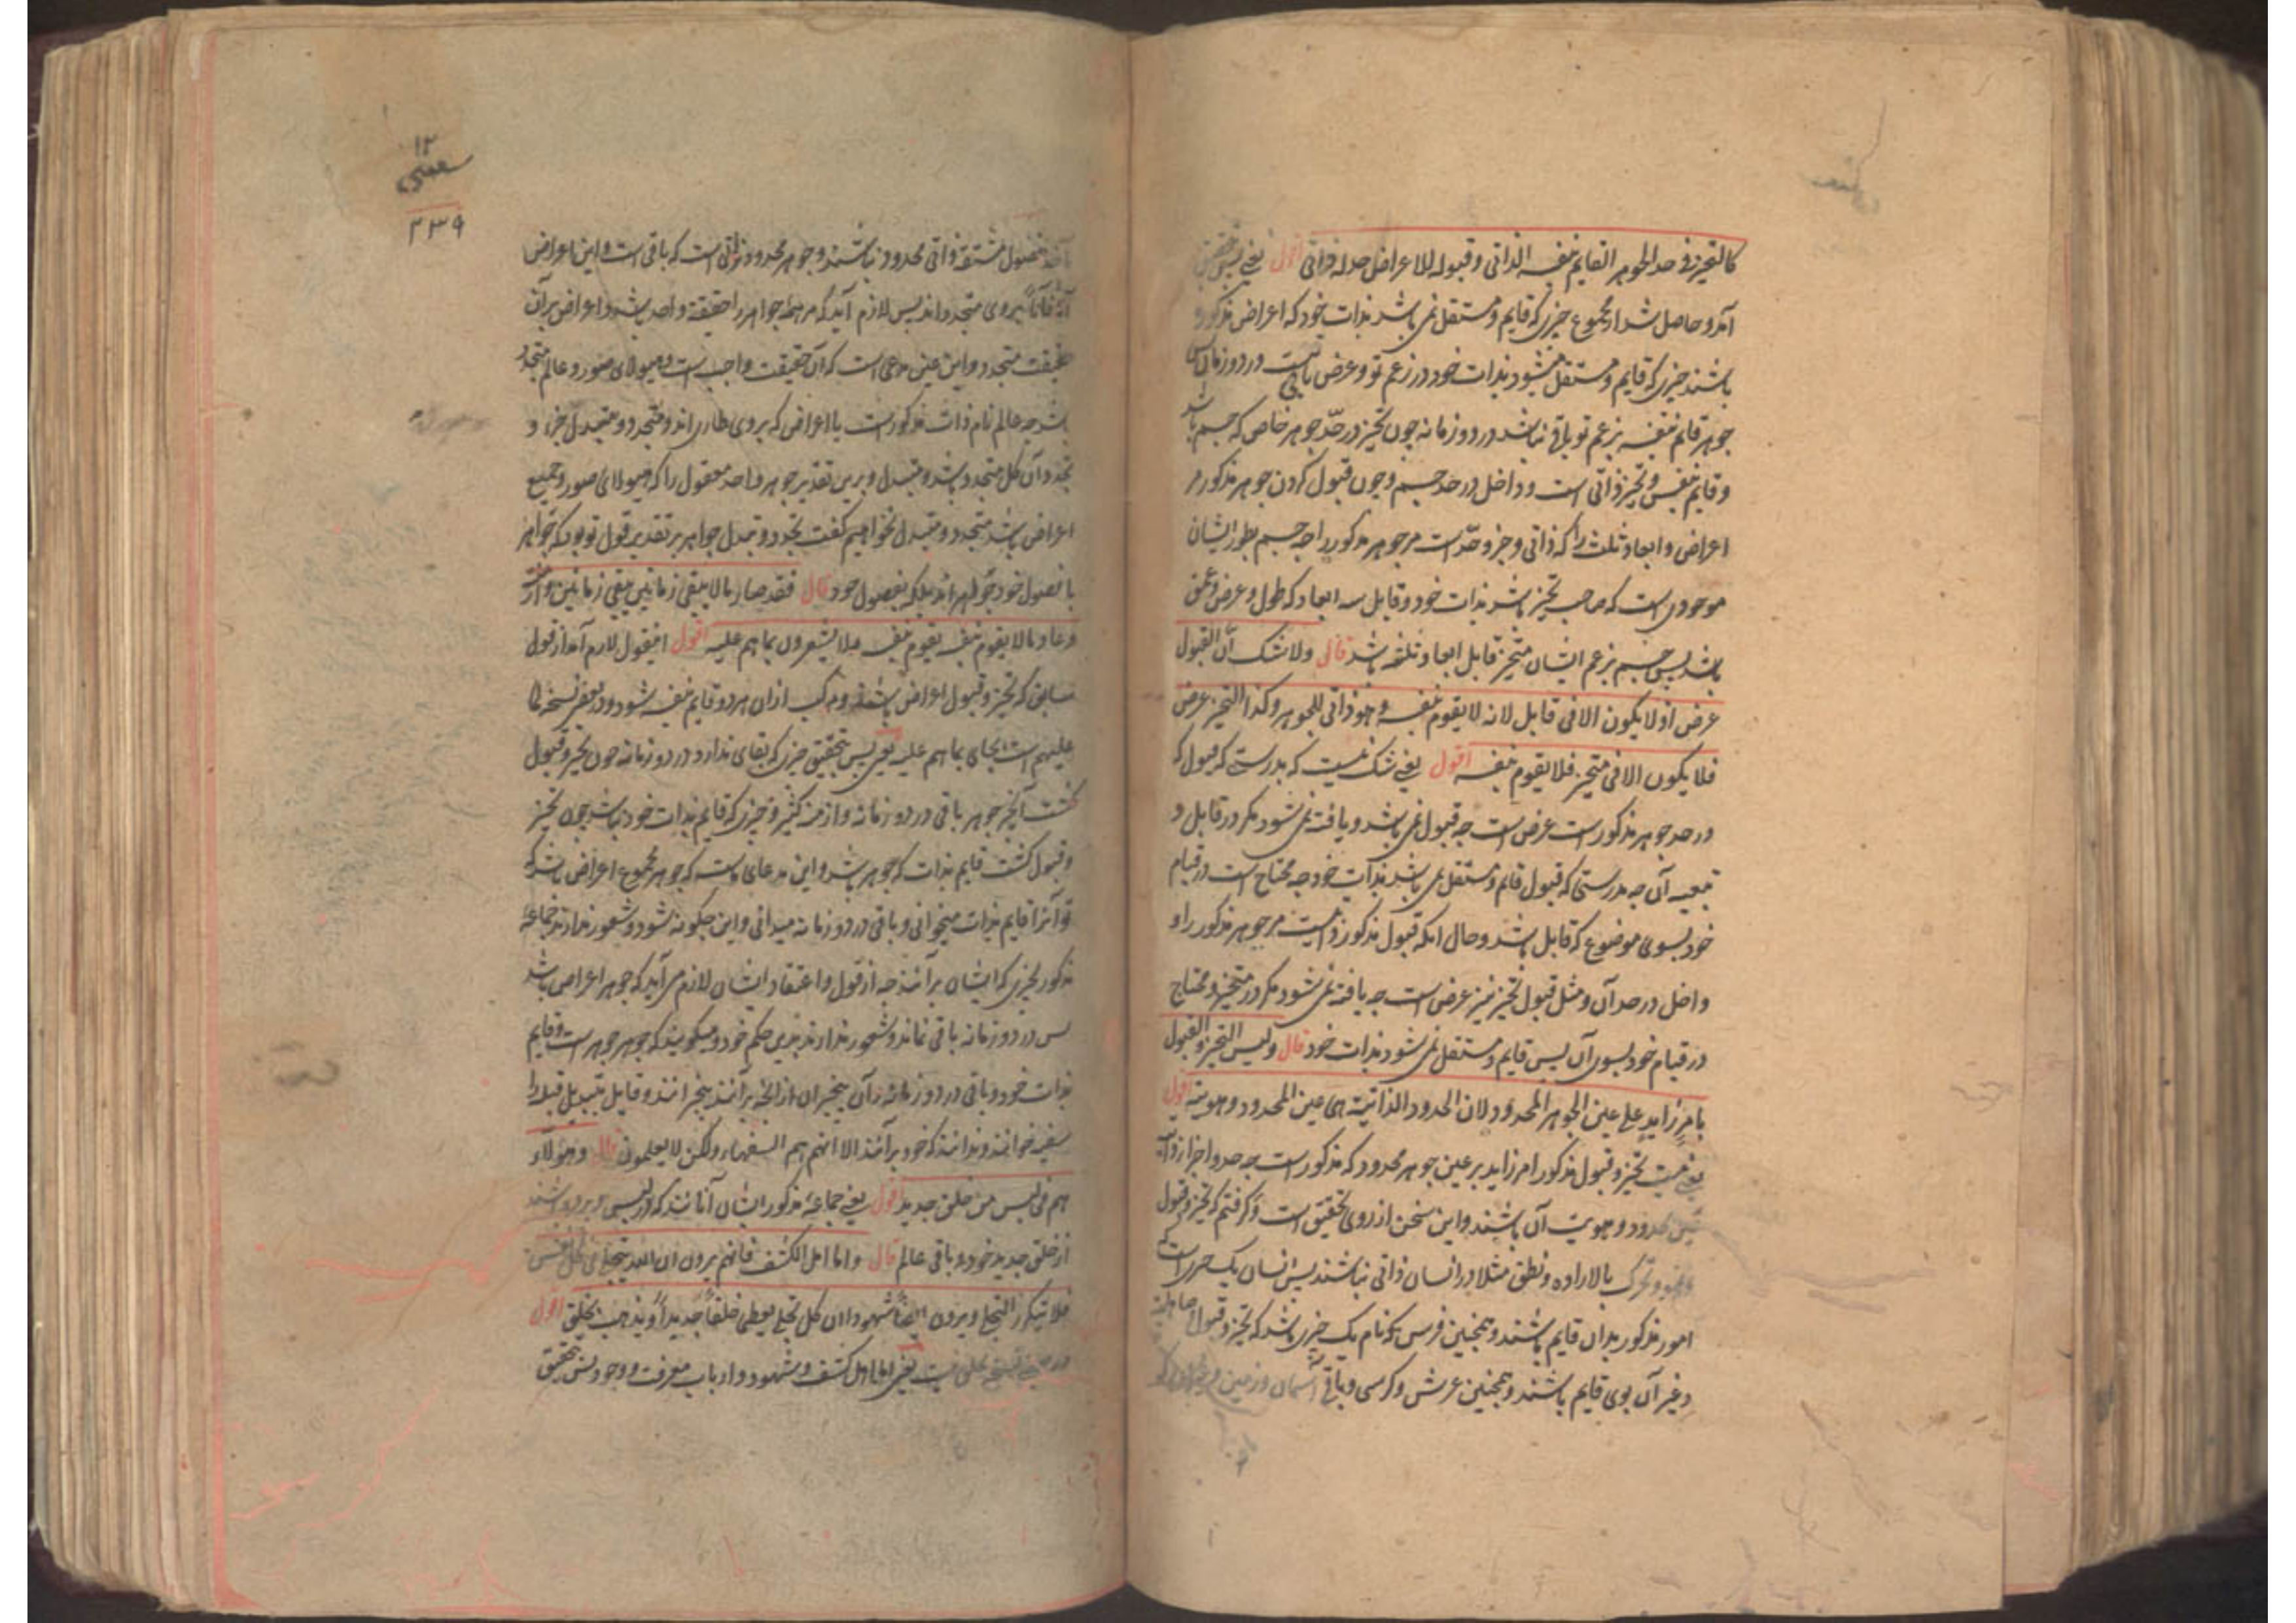 كالتحيز فی حد الجوهر القايم بنفسه الذاتی وقبوله للاعراض حد له ذاتی اقول یعنی پس تحقیق
آمد و حاصل شد از مجموع چیزی که قایم و مستقل نمی باشد بذات خود که اعراض مذکوره
باشند چیزی که قایم و مستقل میشود بذات خود در زعم تو و عرض باقی نیست در دو زمان پس
جوهر قائم بنفسه بزعم تو باقی نباشد در دو زمانه چون تحیز در حدّ جوهر خاص که جسم باشد
و قایم بنفس و تحیز ذاتی است و داخل در حد جسم و چون قبول کردن جوهر مذکور مر
اعراض و ابعاد ثلث را که ذاتی و جزو حدّ است مر جوهر مذکور را چه جسم بطور ایشان
موجودی است که صاحب تحیز باشد بذات خود و قابل سه ابعاد که طول و عرض و عمق
باشد پس جسم بزعم ایشان متحیز قابل ابعاد ثلثه باشد قال ولا شک انّ القبول
عرض اذ لا یکون الا فی قابل لانه لا یقوم بنفسه و هو ذاتی للجوهر و کذا التحیز عرض
فلا یکون الا فی متحیز فلا یقوم بنفسه اقول یعنی شک نیست که بدرستی که قبول که
در حد جوهر مذکور است عرض است چه قبول نمی باشد و یافته نمی شود مگر در قابل و
تبعیه آن چه بدرستی که قبول قایم و مستقل نمی باشد بذات خود چه محتاج است در قیام
خود بسوی موضوع که قابل باشد و حال آنکه قبول مذکور ذاتیست مر جوهر مذکور را و
داخل در حد آن و مثل قبول تحیز نیز عرض است چه یافته نمی شود مگر در متحیز و محتاج
در قیام خود بسوی آن پس قایم و مستقل نمی شود بذات خود قال ولیس التحیز والقبول
بامر زاید علی عین الجوهر المحدود لان الحدود الذاتیة هی عین المحدود و هویته اقول
یعنی نیست تحیز و قبول مذکور امر زاید بر عین جوهر محدود که مذکور است چه حد و اجزا ذاتیه
عین محدود و هویت آن باشند و این سخن از روی تحقیق است و گرفتم که تحیز و قبول
و تحرک بالاراده و نطق مثلا در انسان ذاتی نباشند پس انسان یک چیزی است که
امور مذکور بدان قایم باشند و همچنین فرس که نام یک چیزی باشد که تحیز و قبول
و غیر آن بوی قایم باشند و همچنین عرش و کرسی و باقی آسمان و زمین
١٢
٢٣٩
بفصول مشتقه ذاتی محدود نباشند و جوهر محدود ذاتی است که باقی است و این اعراض
آناً فآناً بروی متجدداند پس لازم آید که مر همه جواهر را حقیقة واحد باشد و اعراض بر آن
حقیقت متجدد و این عین مدعی است که آن حقیقت واجب است و هیولای صور و عالم متجدد
باشد چه عالم نام ذات مذکور است با اعراض که بروی طاری اند و متجدد و متبدل جزء و
تجدد آن کل متجدد باشد و متبدل و برین تقدیر جوهر واحد معقول را که هیولای صور و جمیع
اعراض باشد متجدد و متبدل نخواهیم گفت تجدد و تبدل جواهر بر تقدیر قول تو بود که جواهر
با فصول خود جواهر اند بلکه بفصول خود قال فقد صار ما لا یبقی زمانین یبقی زمانین و ازمنة
و عاد ما لا یقوم بنفسه یقوم بنفسه و لا یشعرون بما هم علیه اقول
سابق که تحیز و قبول اعراض باشند و مرکب ازان هر دو قایم بنفسه شود و در بعض نسخه لما
علیهم است بجای بما هم علیه یعنی پس بتحقیق چیزی که بقای ندارد در دو زمانه چون تحیز و قبول
گشت آن چیز جوهر باقی در دو زمانه و ازمنه کثیر و چیزی که قایم بذات خود نباشد چون تحیز
و قبول گشت قایم بذات که جوهر باشد و این مدعای ماست که جوهر مجموع اعراض باشد که
تو آنرا قایم بذات میخوانی و باقی در دو زمانه میدانی و این چگونه شود و شعور ندارند جماعة
مذکور بچیزی که ایشان برآنند چه از قول و اعتقاد ایشان لازم می آید که جوهر اعراض باشد
پس در دو زمانه باقی نماند و شعور ندارند بدین حکم خود و میگویند که جوهر جوهر است و قایم
بذات خود و باقی در دو زمانه
سفیه خوانند و ندانند که خود برآنند الا انهم هم السفهاء ولکن لا یعلمون قال و هؤلاء
هم فی لبس من خلق جدید اقول یعنی جماعة مذکور ایشان آنانند که در لبس
از خلق جدید خود و باقی عالم قال و اما اهل الکشف فانهم یرون ان الله یتجلی فی کل نفس
فلا یتکرر التجلی و یرون ایضاً شهوداً ان کل تجلی یعطی خلقاً جدیداً و یذهب بخلق اقول
یعنی اما اهل کشف و شهود و ارباب معرفت و وجود پس بتحقیق